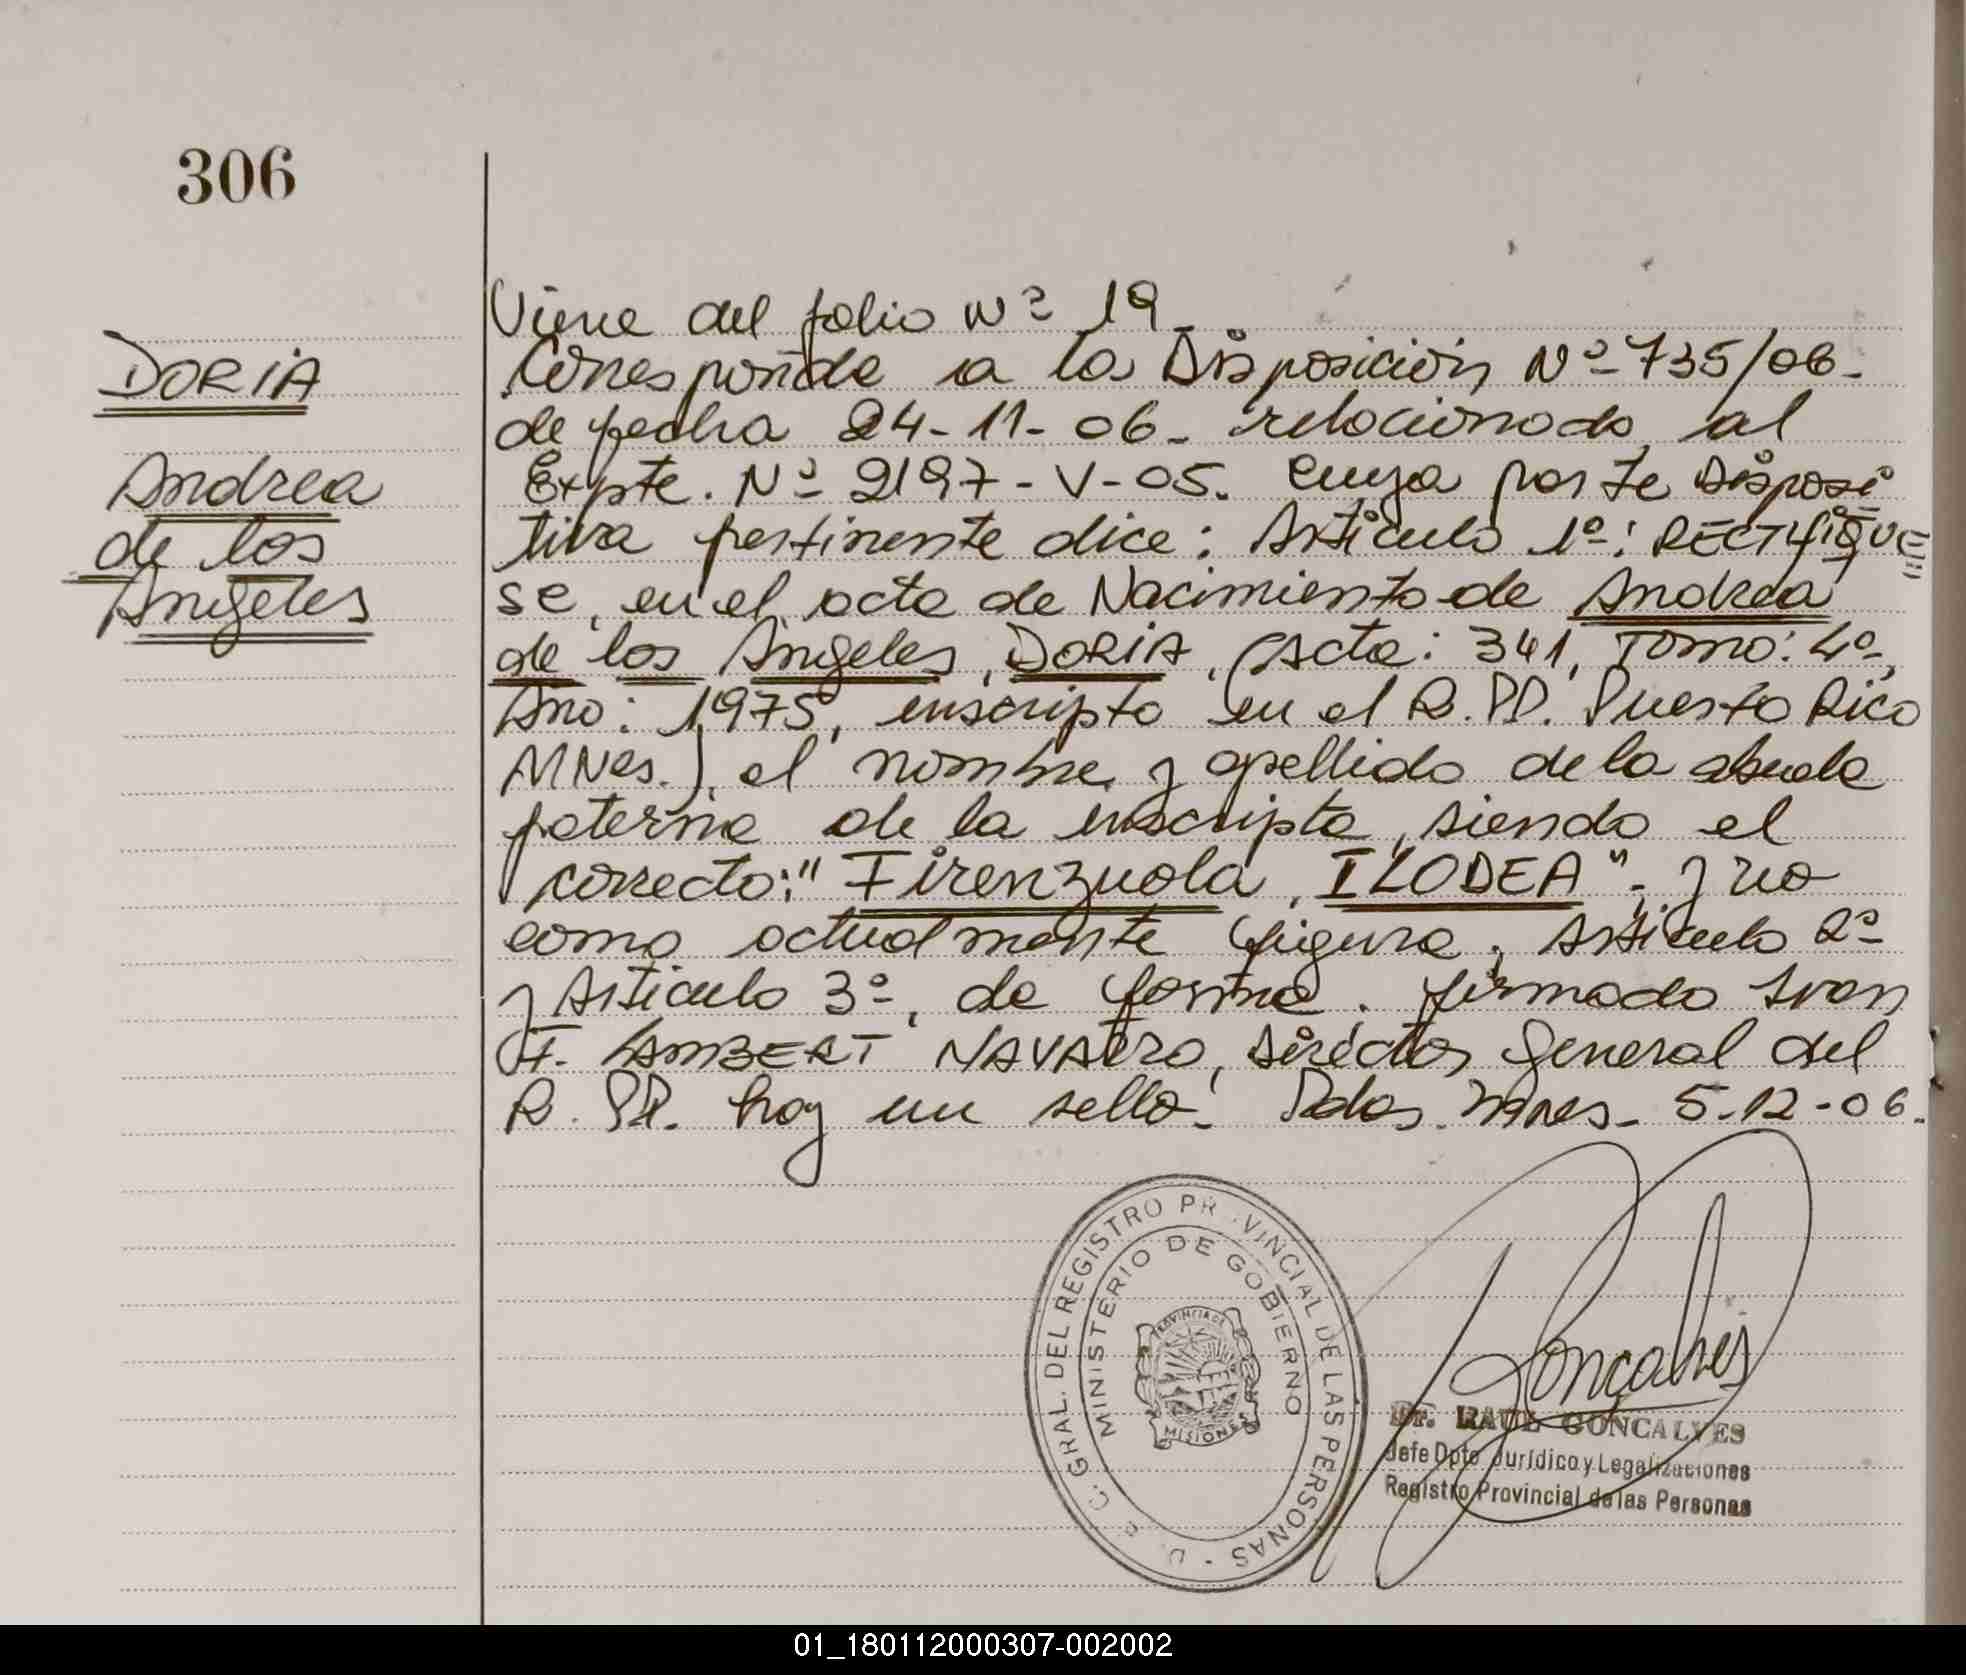 306
DORIA
Andrea
de los
Angeles
Viene del folio Nº 19.
Corresponde a la Disposición Nº 735/06-
de fecha 24-11-06- relacionado al
Expte. Nº 2197-V-05. cuya parte Disposi
tiva pertinente dice: Artículo 1º: RECTIFIQUE
se, en el acta de Nacimiento de Andrea
de los Angeles, DORIA, (Acta: 341, Tomo: 4º,
Año: 1975, inscripto en el R.PP. Puerto Rico
MNes.), el nombre y apellido de la abuela
paterna de la inscripta, siendo el
correcto: "Firenzuola, ILODEA"- y no
como actualmente figura, Artículo 2º
y Artículo 3º, de forma. firmado Ivan
F. LAMBERT NAVARRO, Director General del
R.PP. hay un sello- Pdas. Mnes- 5-12-06-
C. GRAL. DEL REGISTRO PROVINCIAL DE LAS PERSONAS
MINISTERIO DE GOBIERNO
PROVINCIA DE
MISIONES
Goncalves
Dr. RAUL GONCALVES
Jefe Dpto Jurídico y Legalizaciones
Registro Provincial de las Personas
01_180112000307-002002